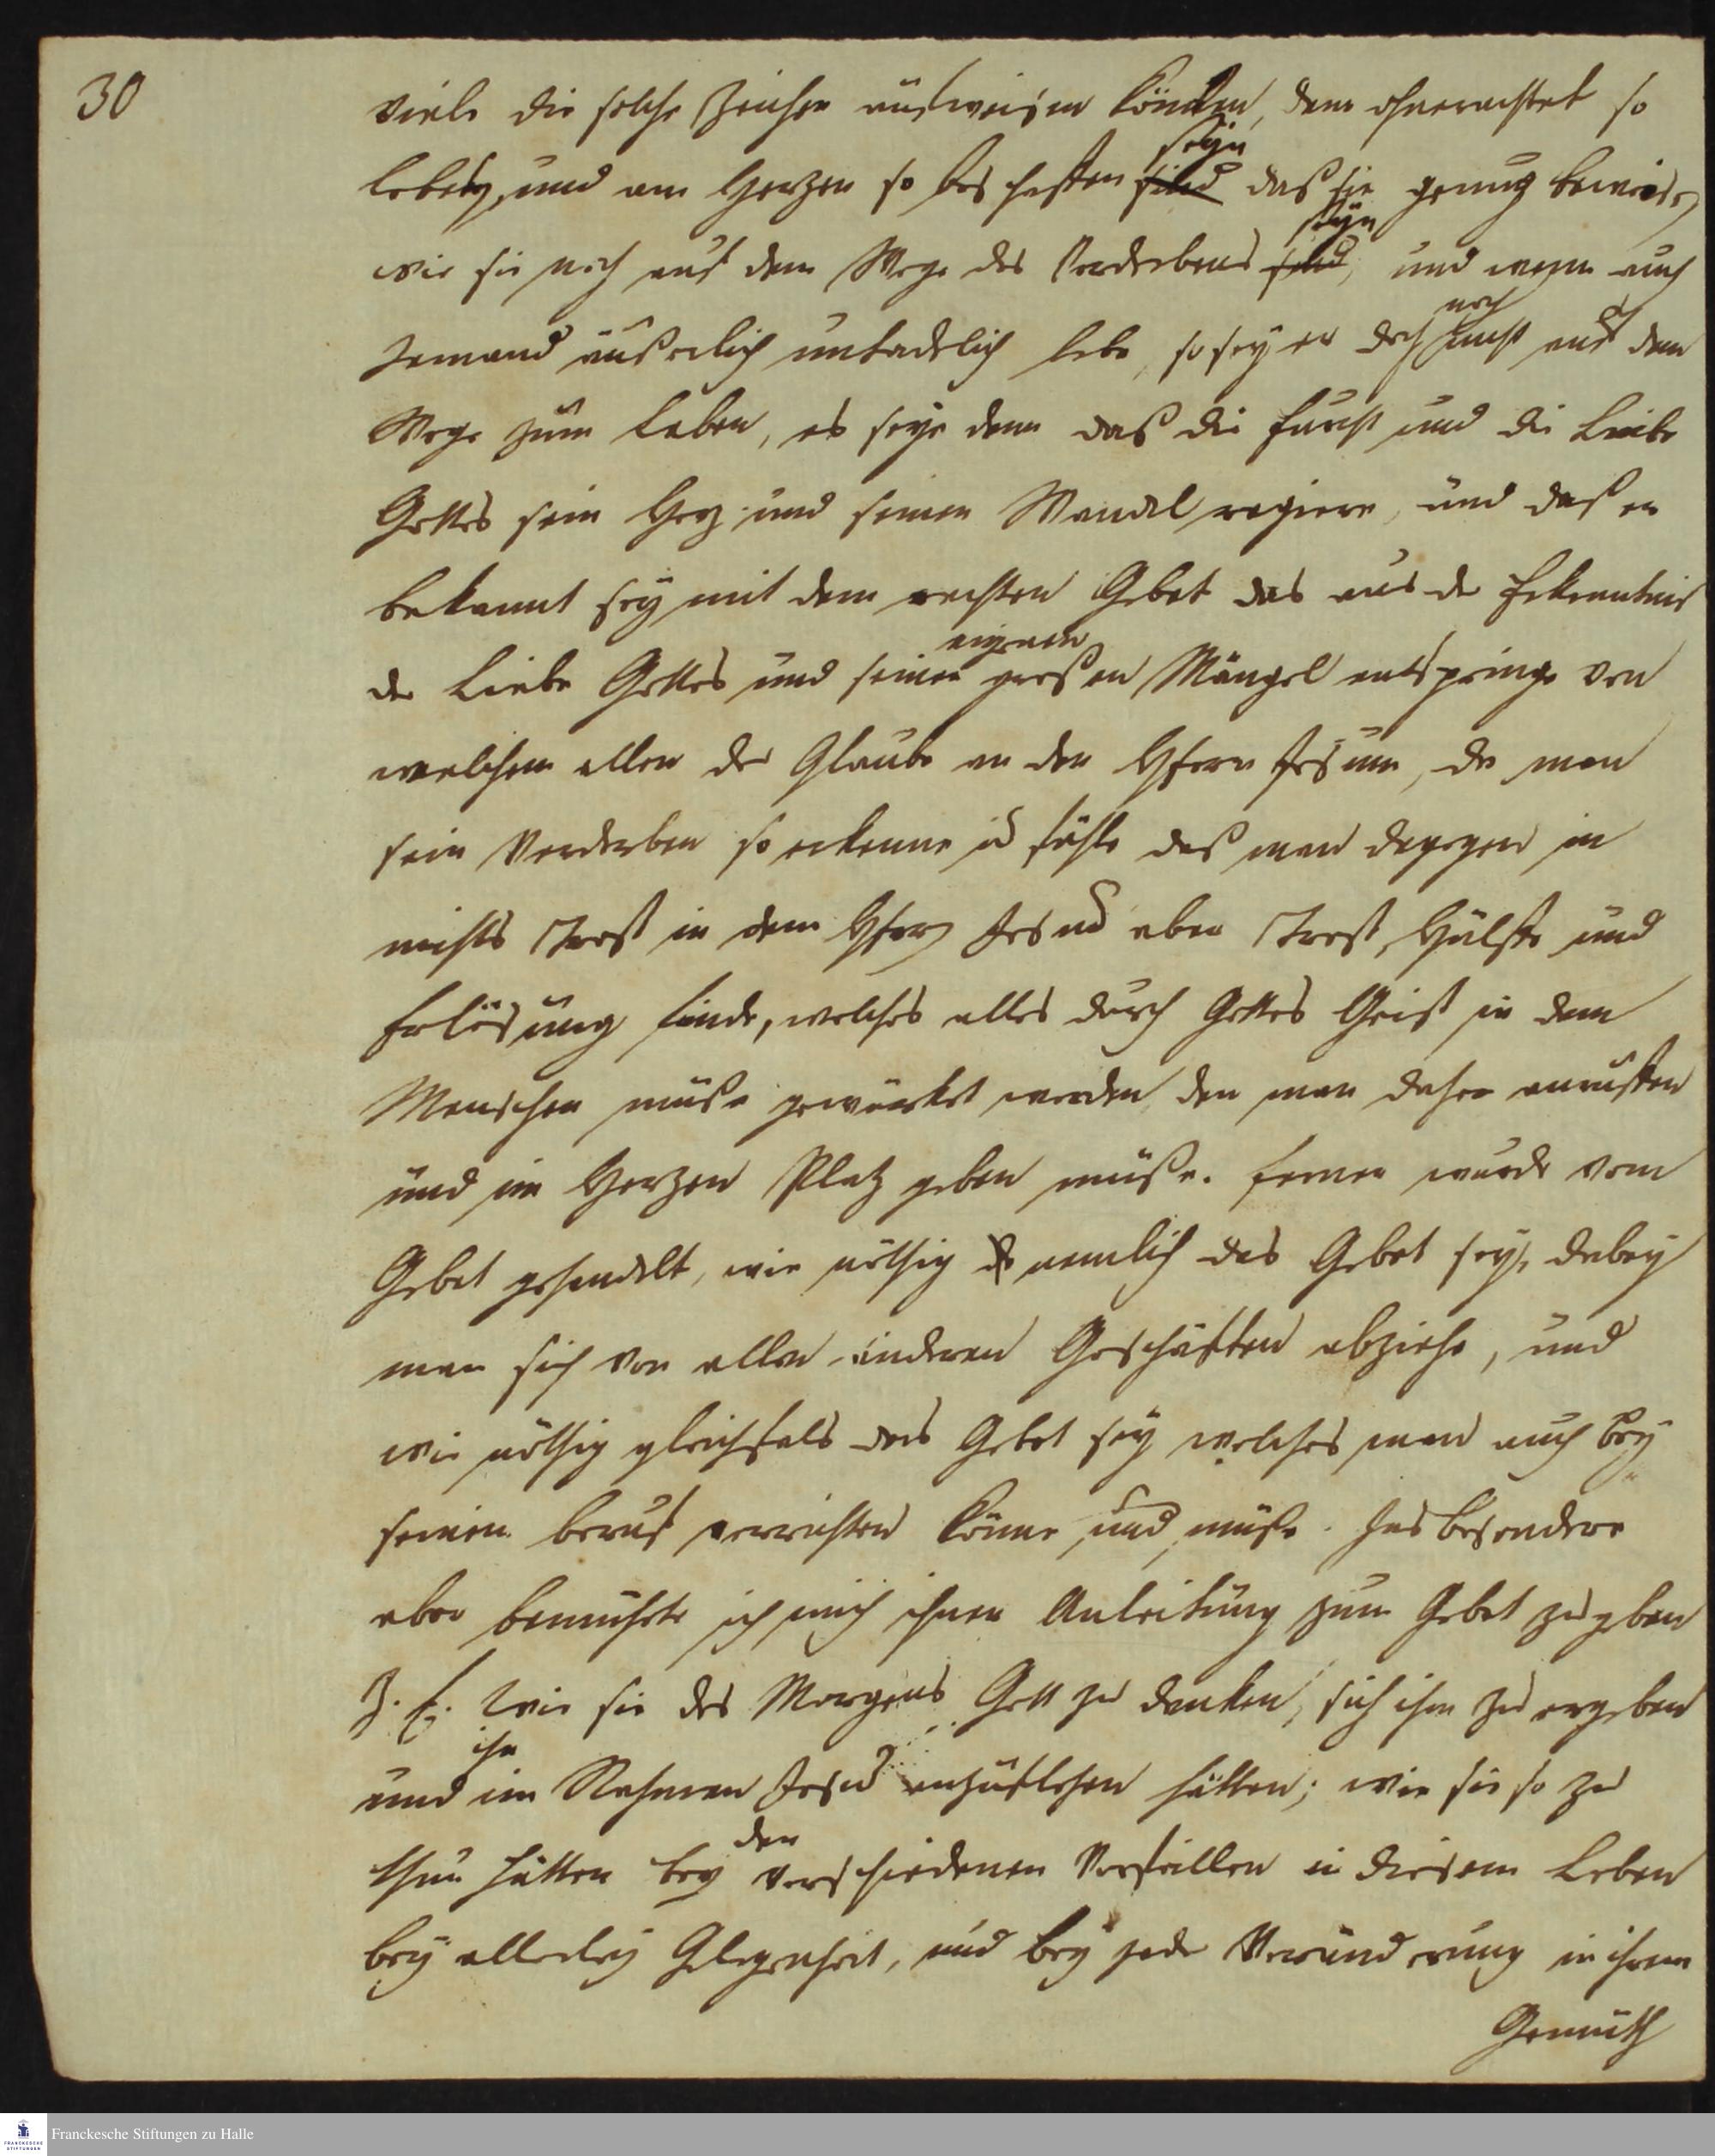 30
viele die solche Zeichen aufweisen könten, dem ohnerachtet so
leben, und am Herzen so beschaffen seyn sind daß sie genug beweisen
wie sie noch auf dem Wege des Verderbens seyn sind, und wenn auch
Jemand äußerlich untadelich lebe, so sey er doch noch nicht auf dem
Wege zum Leben, es seye denn daß die furcht und die Liebe
Gottes sein Herz und seinen Wandel regiere, und daß er
bekannt sey mit dem rechten Gebet das aus der Erkenntnis
der Liebe Gottes und seiner eigenen großen Mängel entspringe von
welchem allen der Glaube an den Hfern Jesum, da man
sein Verderben so erkenne ud fühle daß man dagegen in
nichts Trost in dem Hfern Jesu aber Trost, Hülffe und
Erlösung finde, welches alles durch Gottes Geist in dem
Menschen müße gewürket werden, den man daher anruffen
und im Herzen Platz geben müße. ferner wurde vom
Gebet gehandelt, wie nöthig nemlich das Gebet sey, dabey
man sich von allen anderen Geschäften abziehe, und
wie nöthig gleichfals das Gebet sey welches man auch bey
seinem beruf verrichten könne, und müße. Insbesondere
aber bemühete ich mich ihnen Anleitung zum Gebet zu geben
Z. E. wie sie des Morgens Gott zu danken, sich ihm zu ergeben
und ihn im Nahmen Jesu anzuflehen hätten; wie sie so zu
thun hätten bey den verschiedenen Vorfällen in diesem Leben
bey allerley Gelegenheit, und bey jeder Veränderung in ihrem
Gemüth
Franckesche Stiftungen zu Halle
FRANCKESCHE
STIFTUNGEN